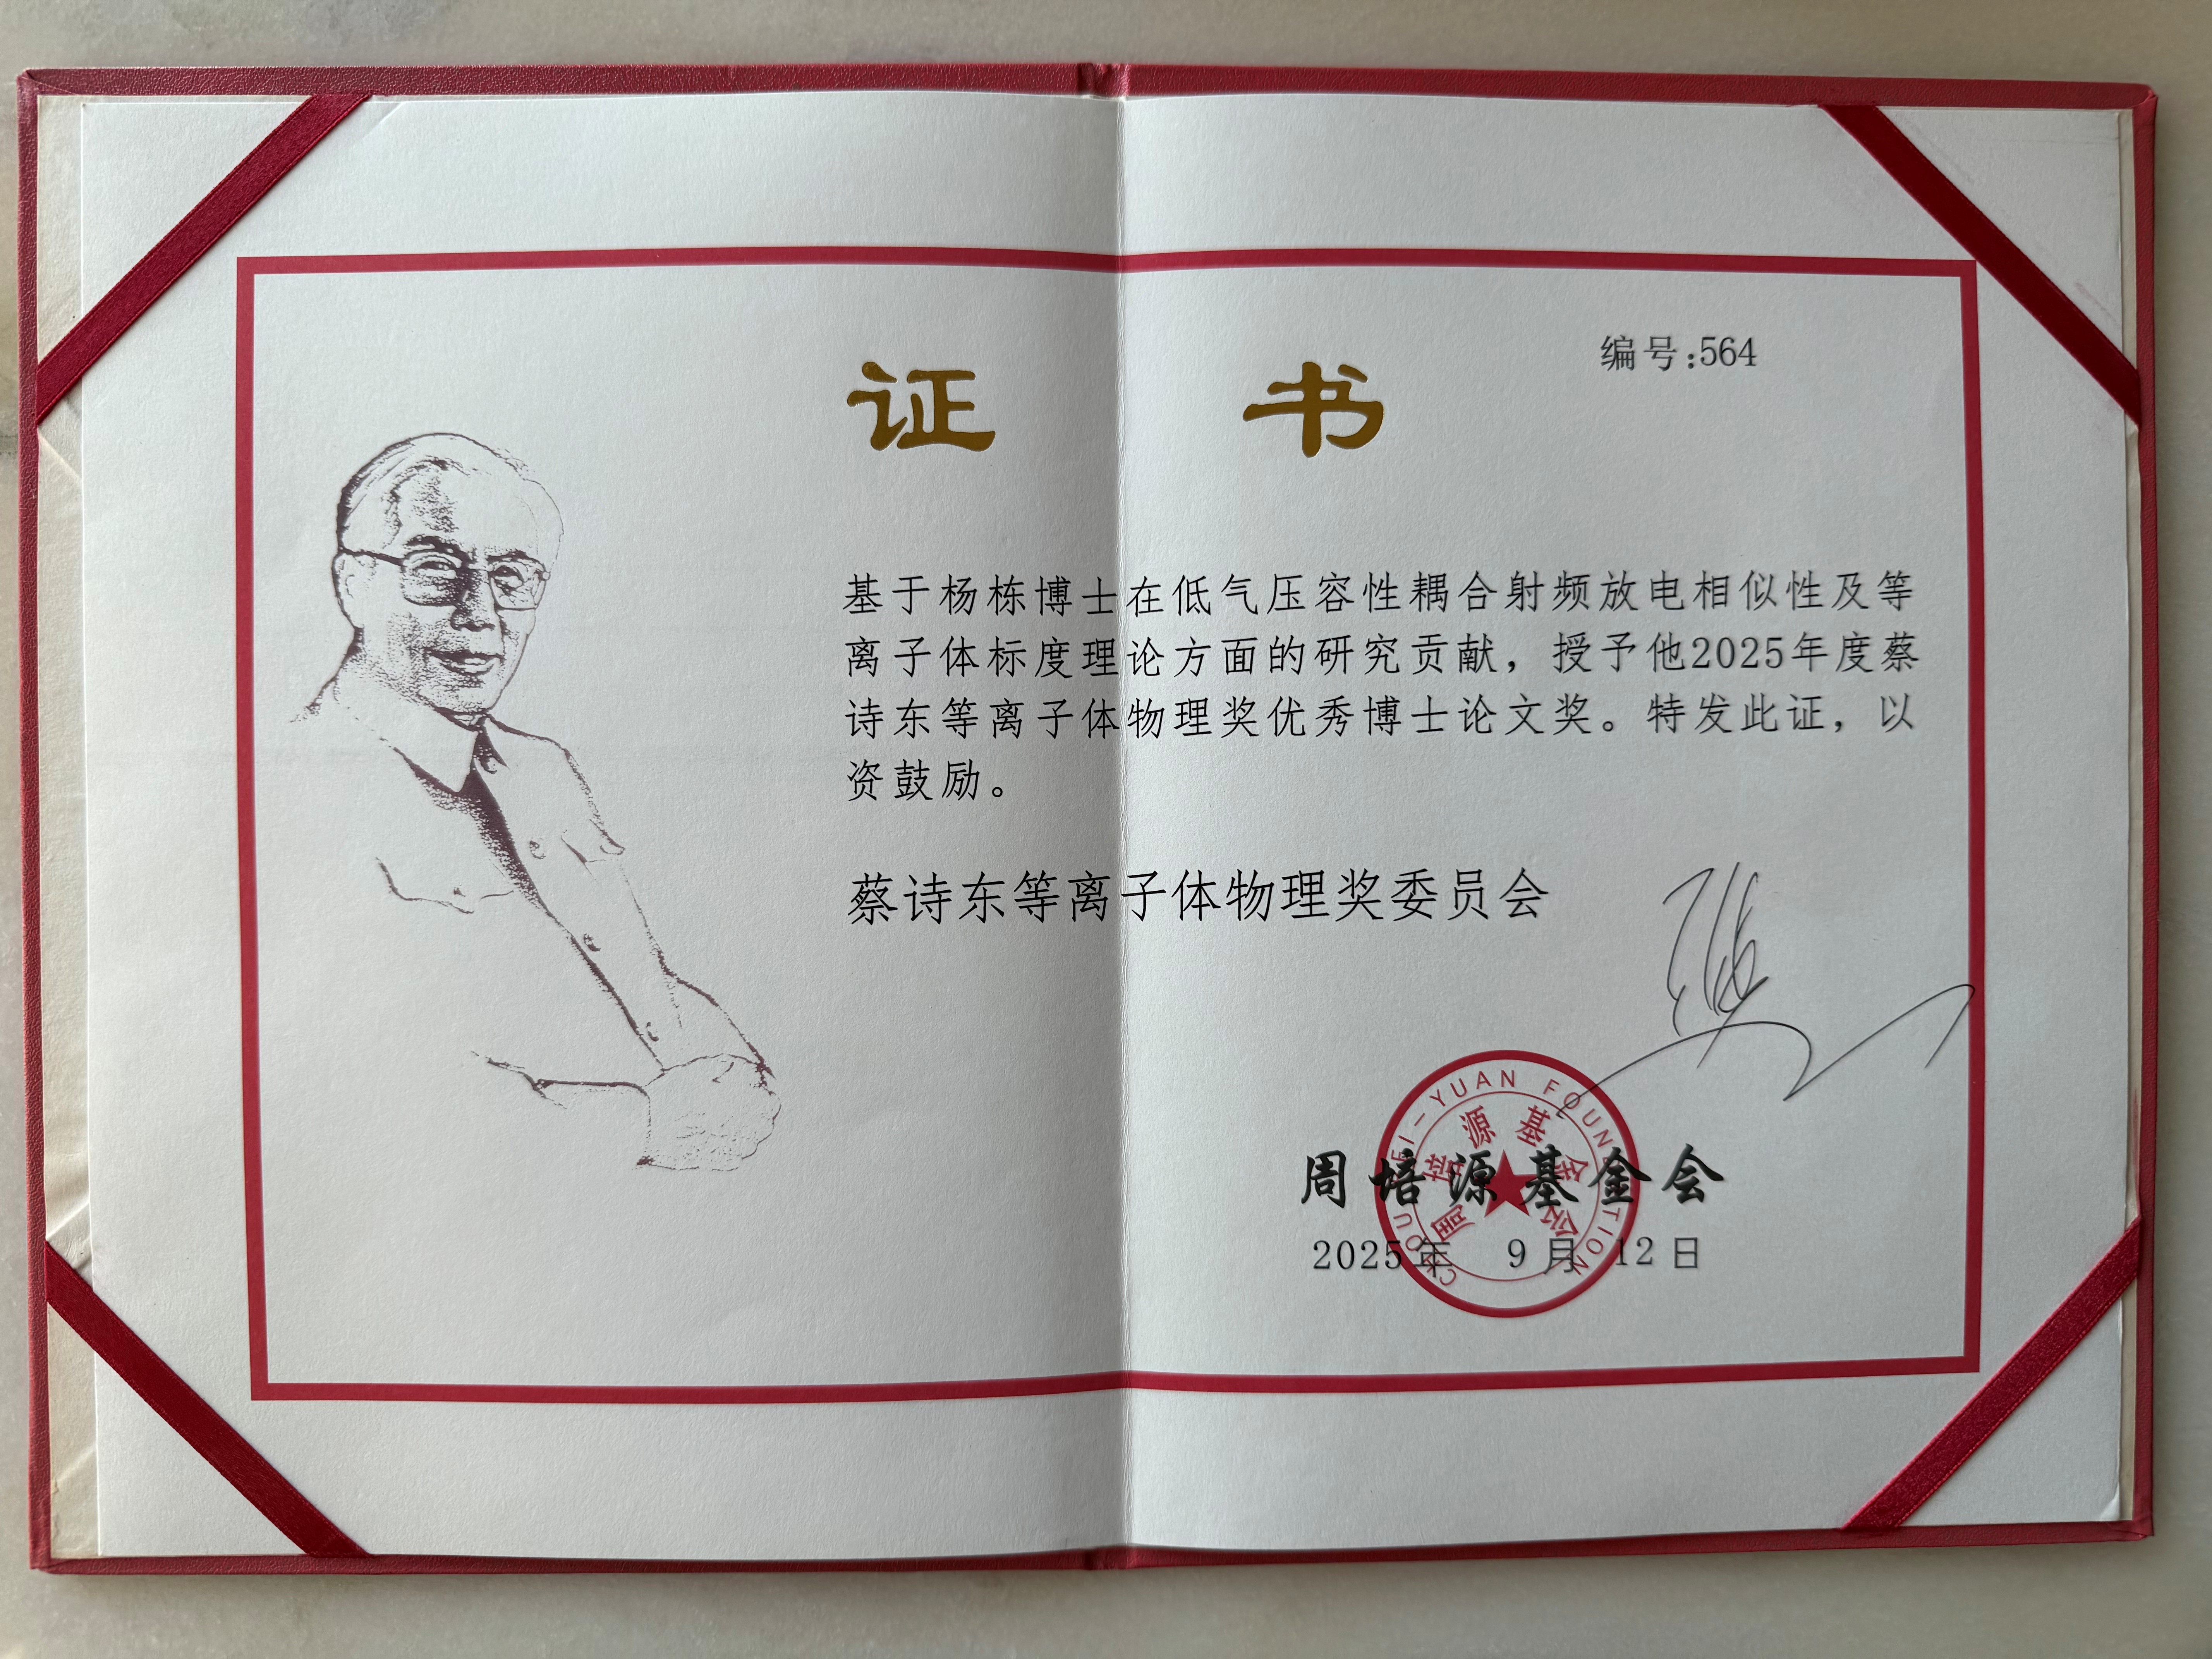 证 书
编号:564
基于杨栋博士在低气压容性耦合射频放电相似性及等
离子体标度理论方面的研究贡献，授予他2025年度蔡
诗东等离子体物理奖优秀博士论文奖。特发此证，以
资鼓励。
蔡诗东等离子体物理奖委员会
周培源基金会
2025年 9月 12日
CHOU PEI-YUAN FOUNDATION
周培源基金会